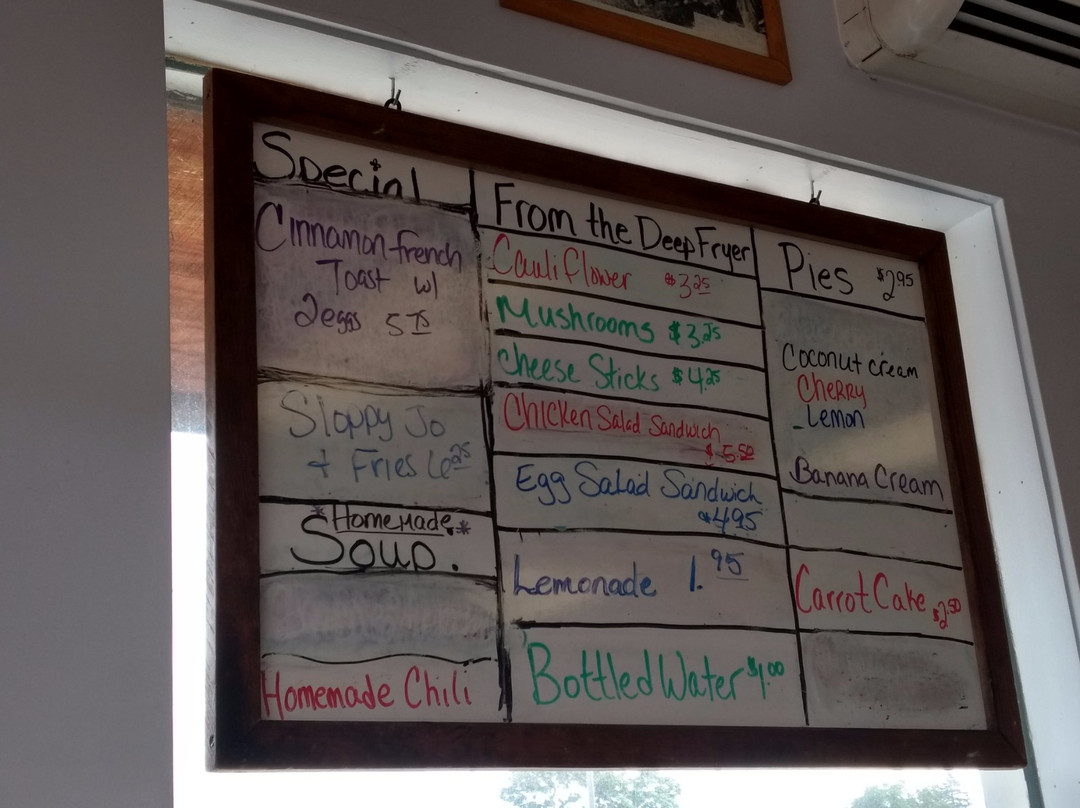 Special
Cinnamon french
Toast w/
2eggs 5 75
Sloppy Jo
+ Fries 6 25
*Homemade*
Soup.
Homemade Chili
From the Deep Fryer
Cauliflower $3 25
Mushrooms $3.25
cheese Sticks $4.25
Chicken Salad Sandwich
$5.50
Egg Salad Sandwich
$4 95
Lemonade 1. 95
Bottled Water $1.00
Pies $2 95
Coconut cream
Cherry
-Lemon
Banana Cream
Carrot Cake $2.50